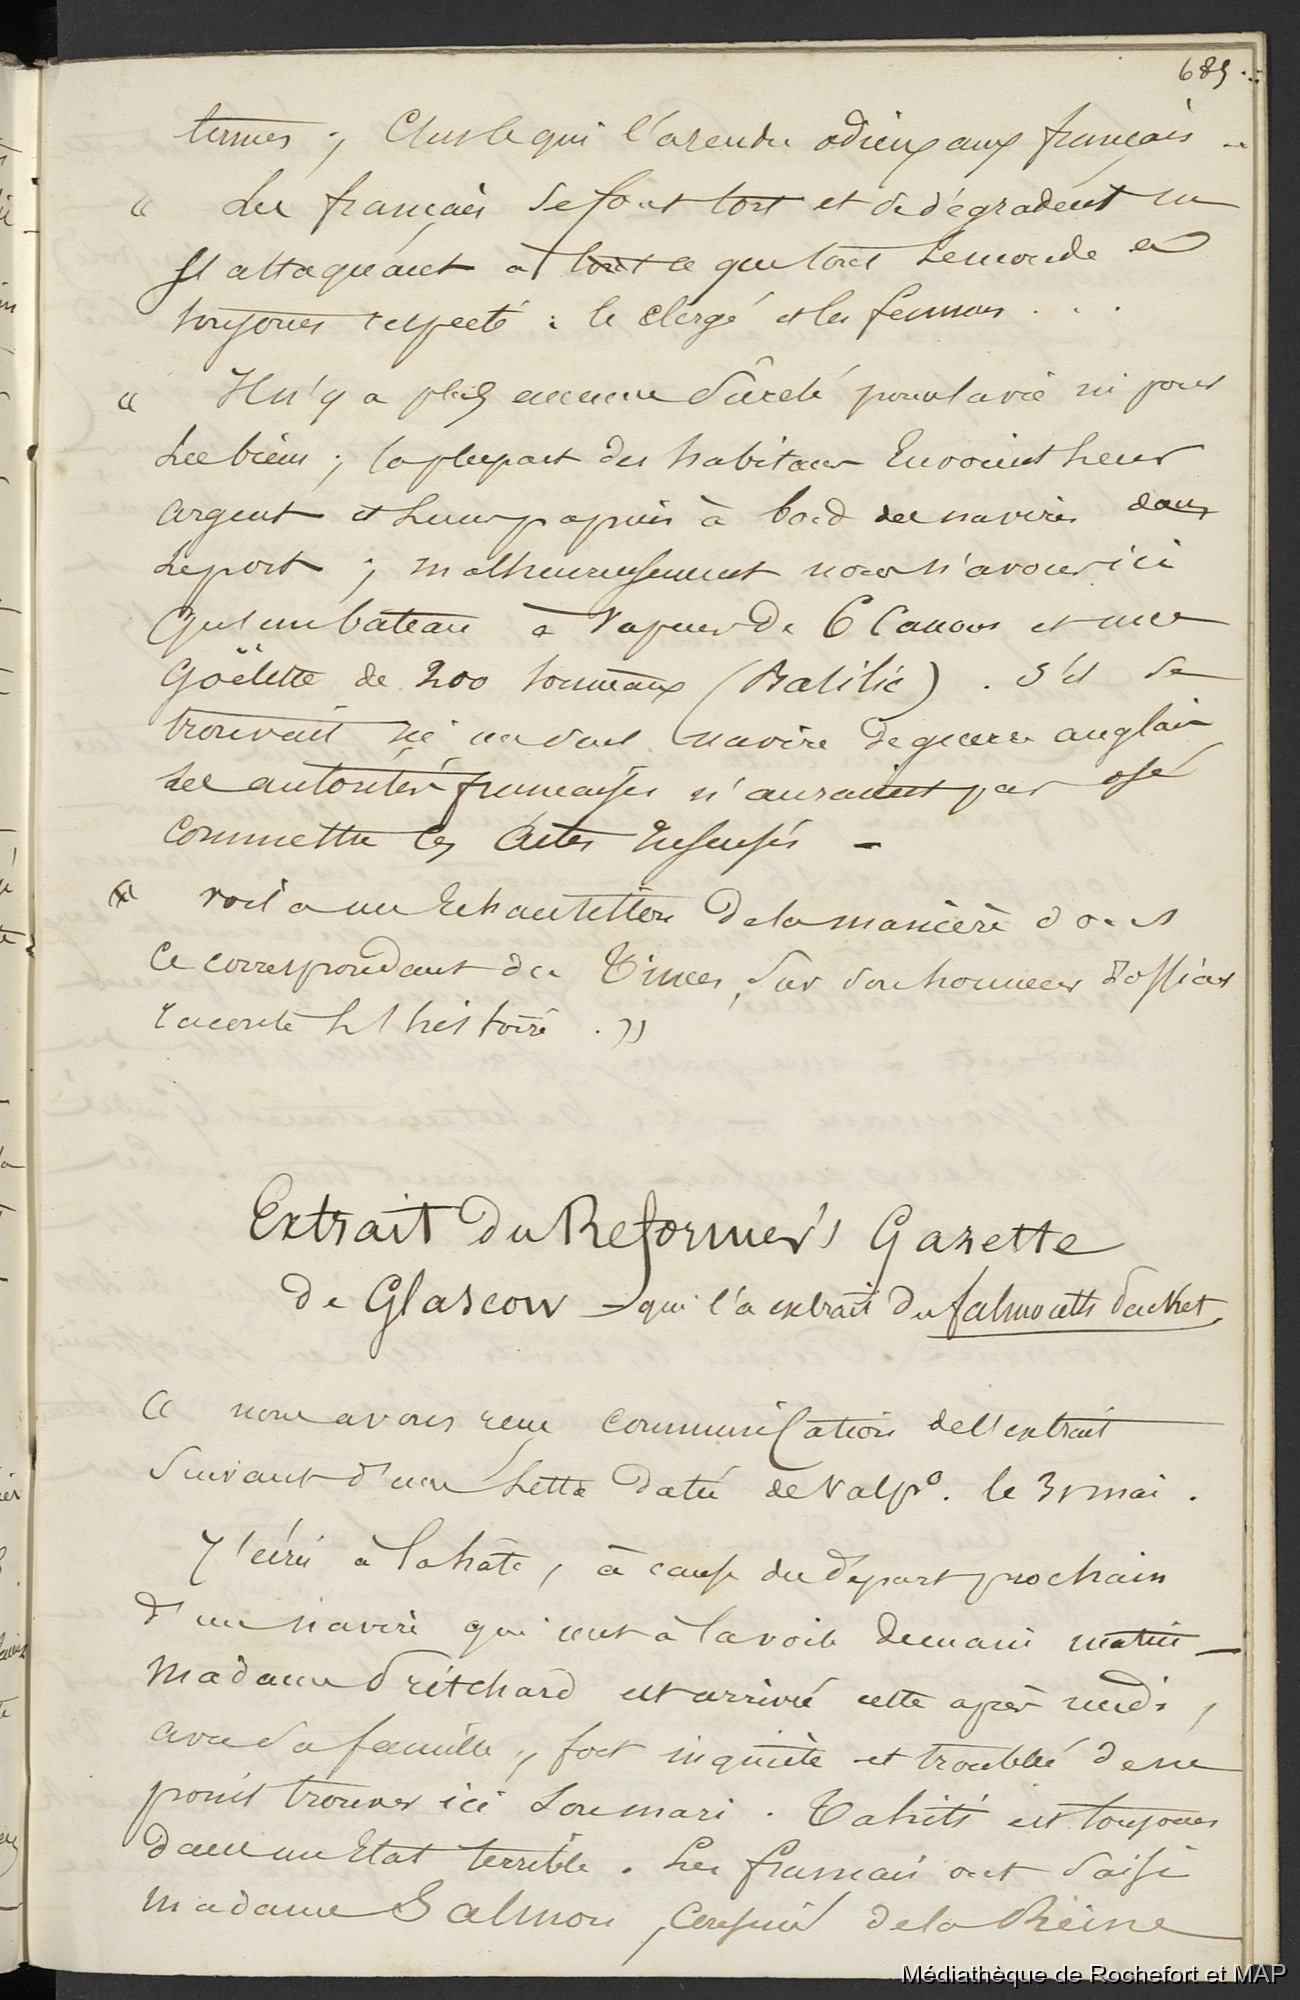 685
termes ; C'est ce qui l'a rendu odieux aux français
" Les français se font tort et se dégradent en
s'attaquant à tout ce que tout le monde a
toujours respecté : le clergé et les femmes . . .
" Il n'y a plus aucune sûreté pour la vie ni pour
les biens ; la plupart des habitans Envoient leur
argent et leurs papiers à bord des navires dans
le port ; malheureusement nous n'avons ici
qu'un bateau à vapeur de 6 Canons et une
Goëlette de 200 tonneaux (Basilic) . S'il se
trouvait ici un seul navire de guerre anglais
les autorités françaises n'auraient pas osé
commettre ces actes Insensés -
" voilà un Echantillon de la manière dont
ce correspondant du Times, sur son honneur d'officier
raconte l'histoire . »
Extrait Du Reformer's Gazette
de Glascow - qui l'a extrait du falmouth Packet,
« nous avons reçu communication de l'extrait
suivant d'une lettre datée de Valpo. le 31 mai .
J'écris à la hâte, à cause du départ prochain
d'un navire qui met à la voile demain matin -
Madame Pritchard est arrivée cette après midi,
avec sa famille, fort inquiète et troublée de ne
point trouver ici son mari . Tahiti est toujours
dans un Etat terrible . Les français ont saisi
madame Salmon, cousine de la Reine
Médiathèque de Rochefort et MAP